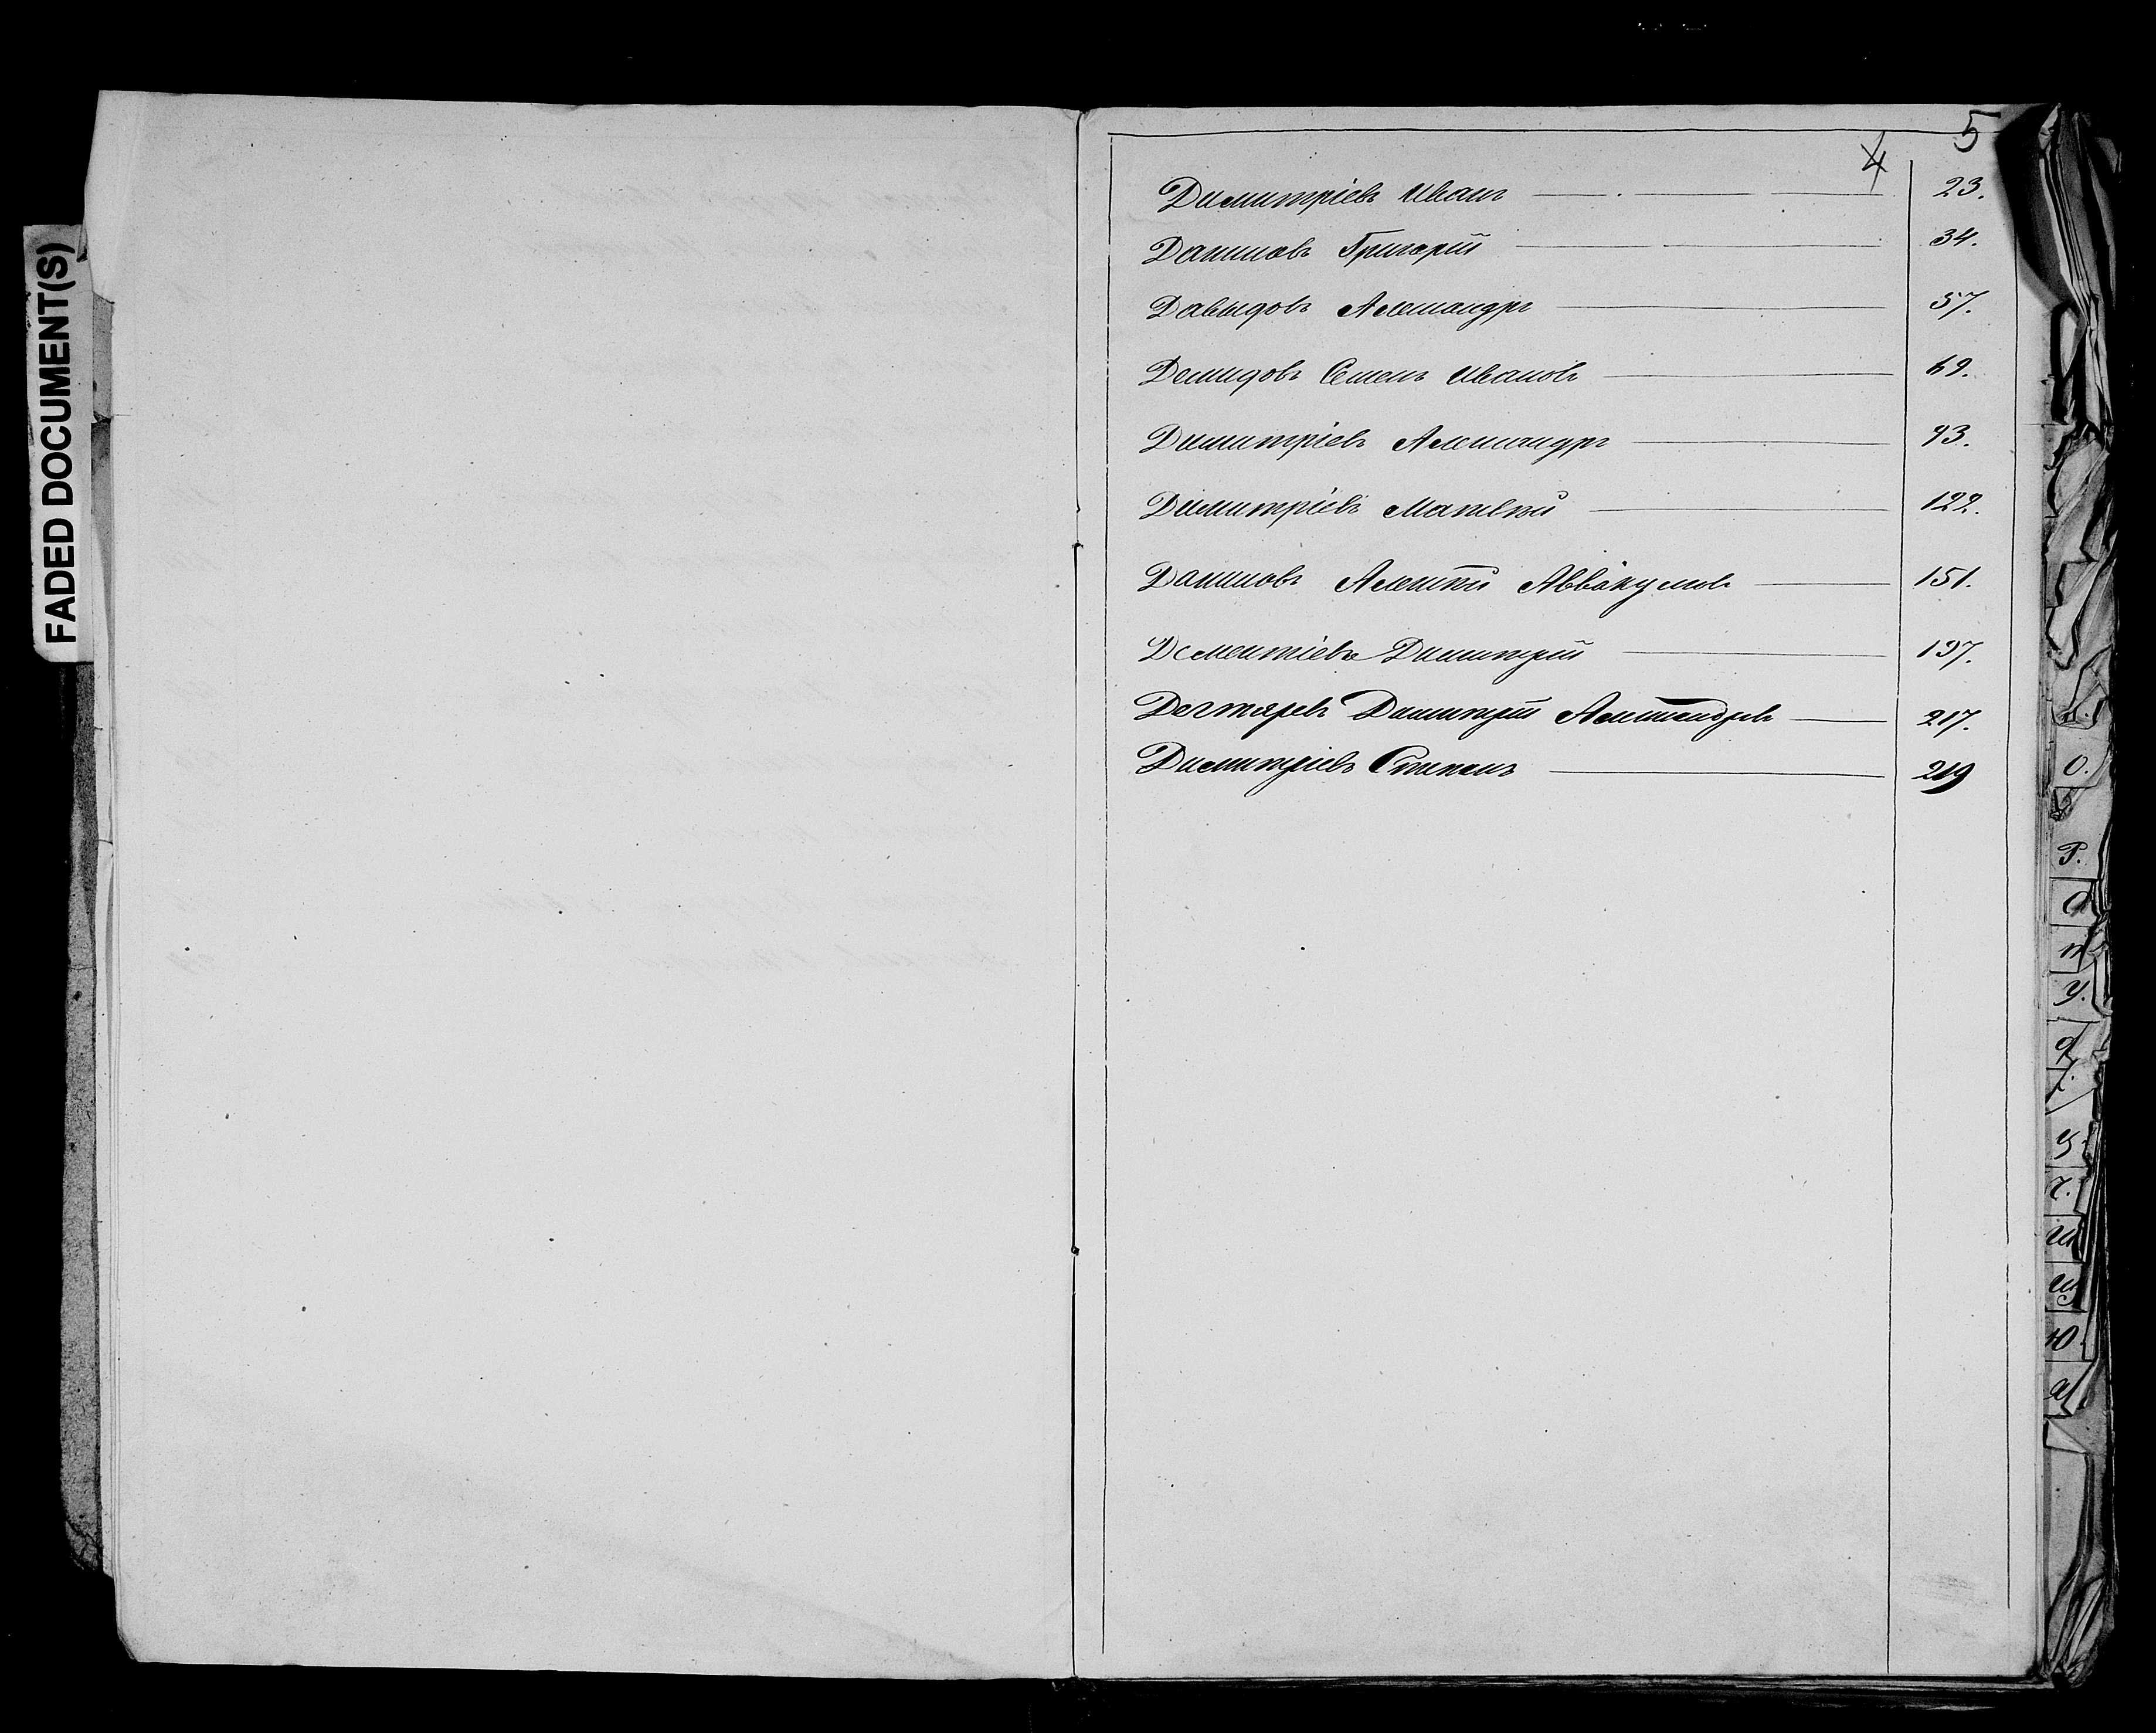 FADED DOCUMENT(S)
4 5
Димитріевъ Иванъ 23.
Даниловъ Григорій 34.
Давыдовъ Александръ 57.
Демидовъ Семенъ Ивановъ 69.
Димитріевъ Александръ 93.
Димитріевъ Матвѣй 122.
Даниловъ Алексѣй Аввакумовъ 151.
Дементіевъ Димитрій 197.
Дегтяревъ Димитрій Александровъ 217.
Димитріевъ Степанъ 219
О.
Р.
С
Т
У.
Ф
Ц.
Ч.
Ш
Щ
Ю